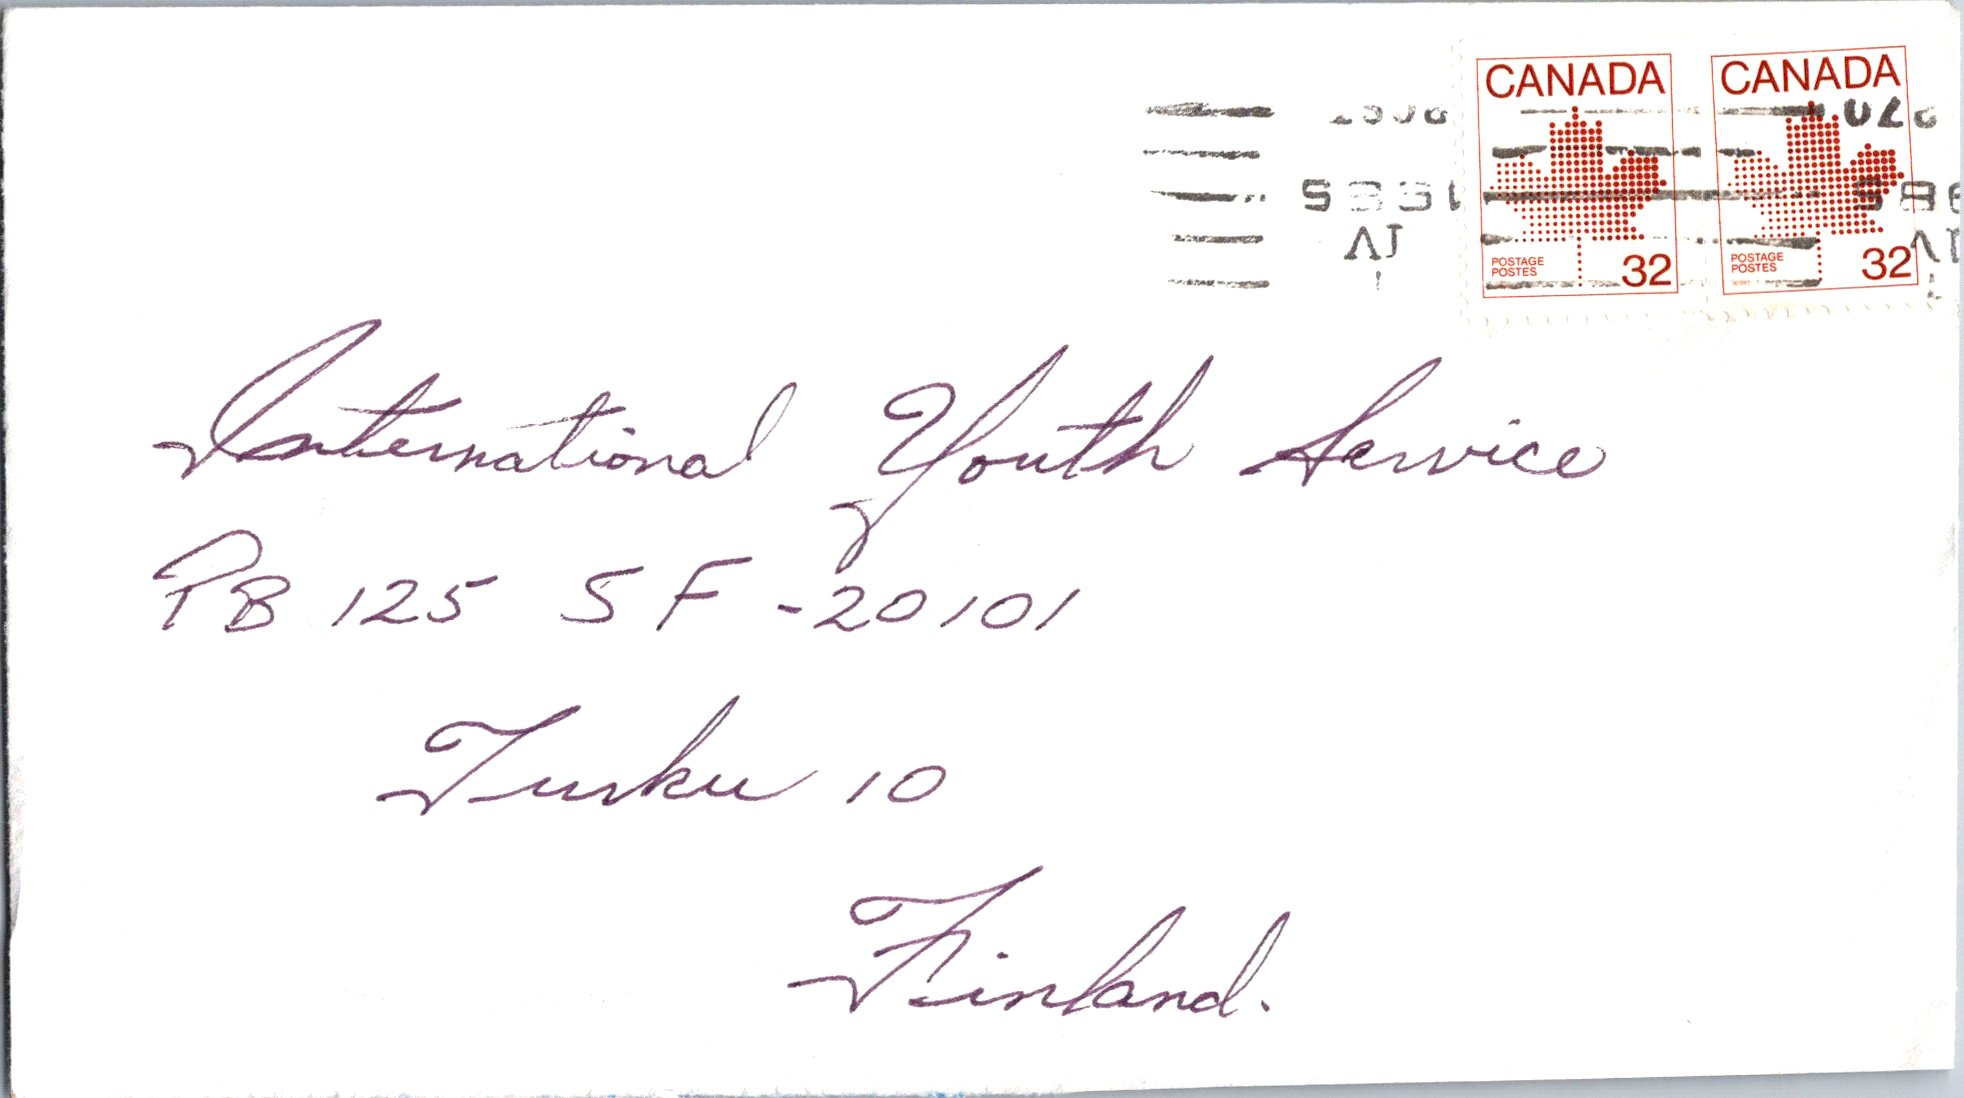 CANADA CANADA
POSTAGE
POSTES
32
POSTAGE
POSTES
32
1985
IV
International Youth Service
PB 125 SF -20101
Turku 10
Finland.